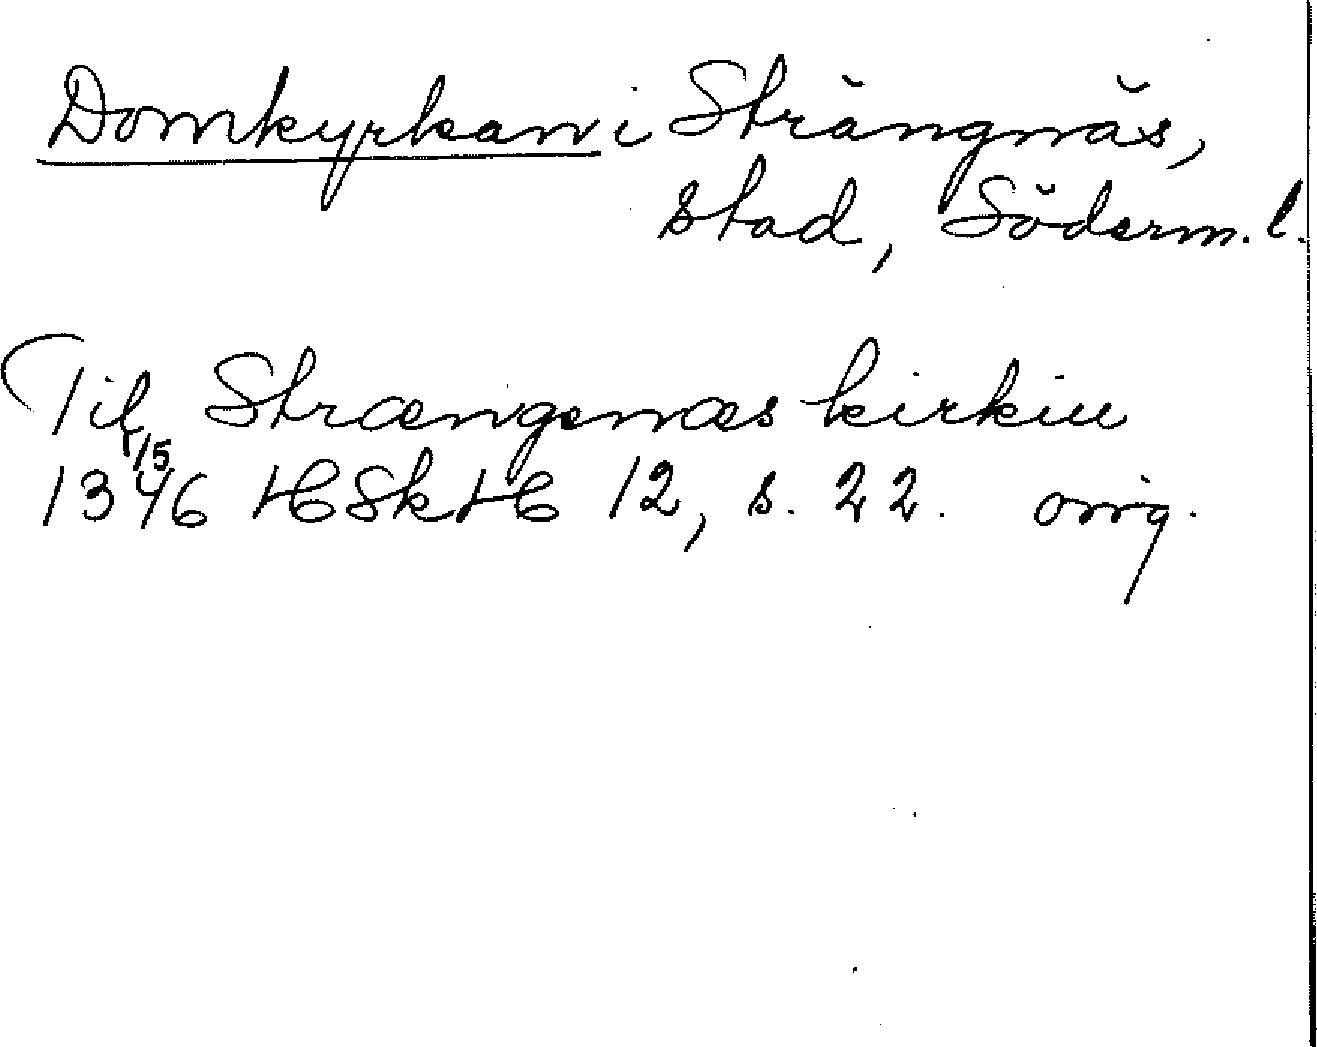 Domkyrkan i Strängnäs,
stad, Söderm. l.
Til Strængenæs kirkiu
1/5
1346 HSkH 12, s. 22. orig.